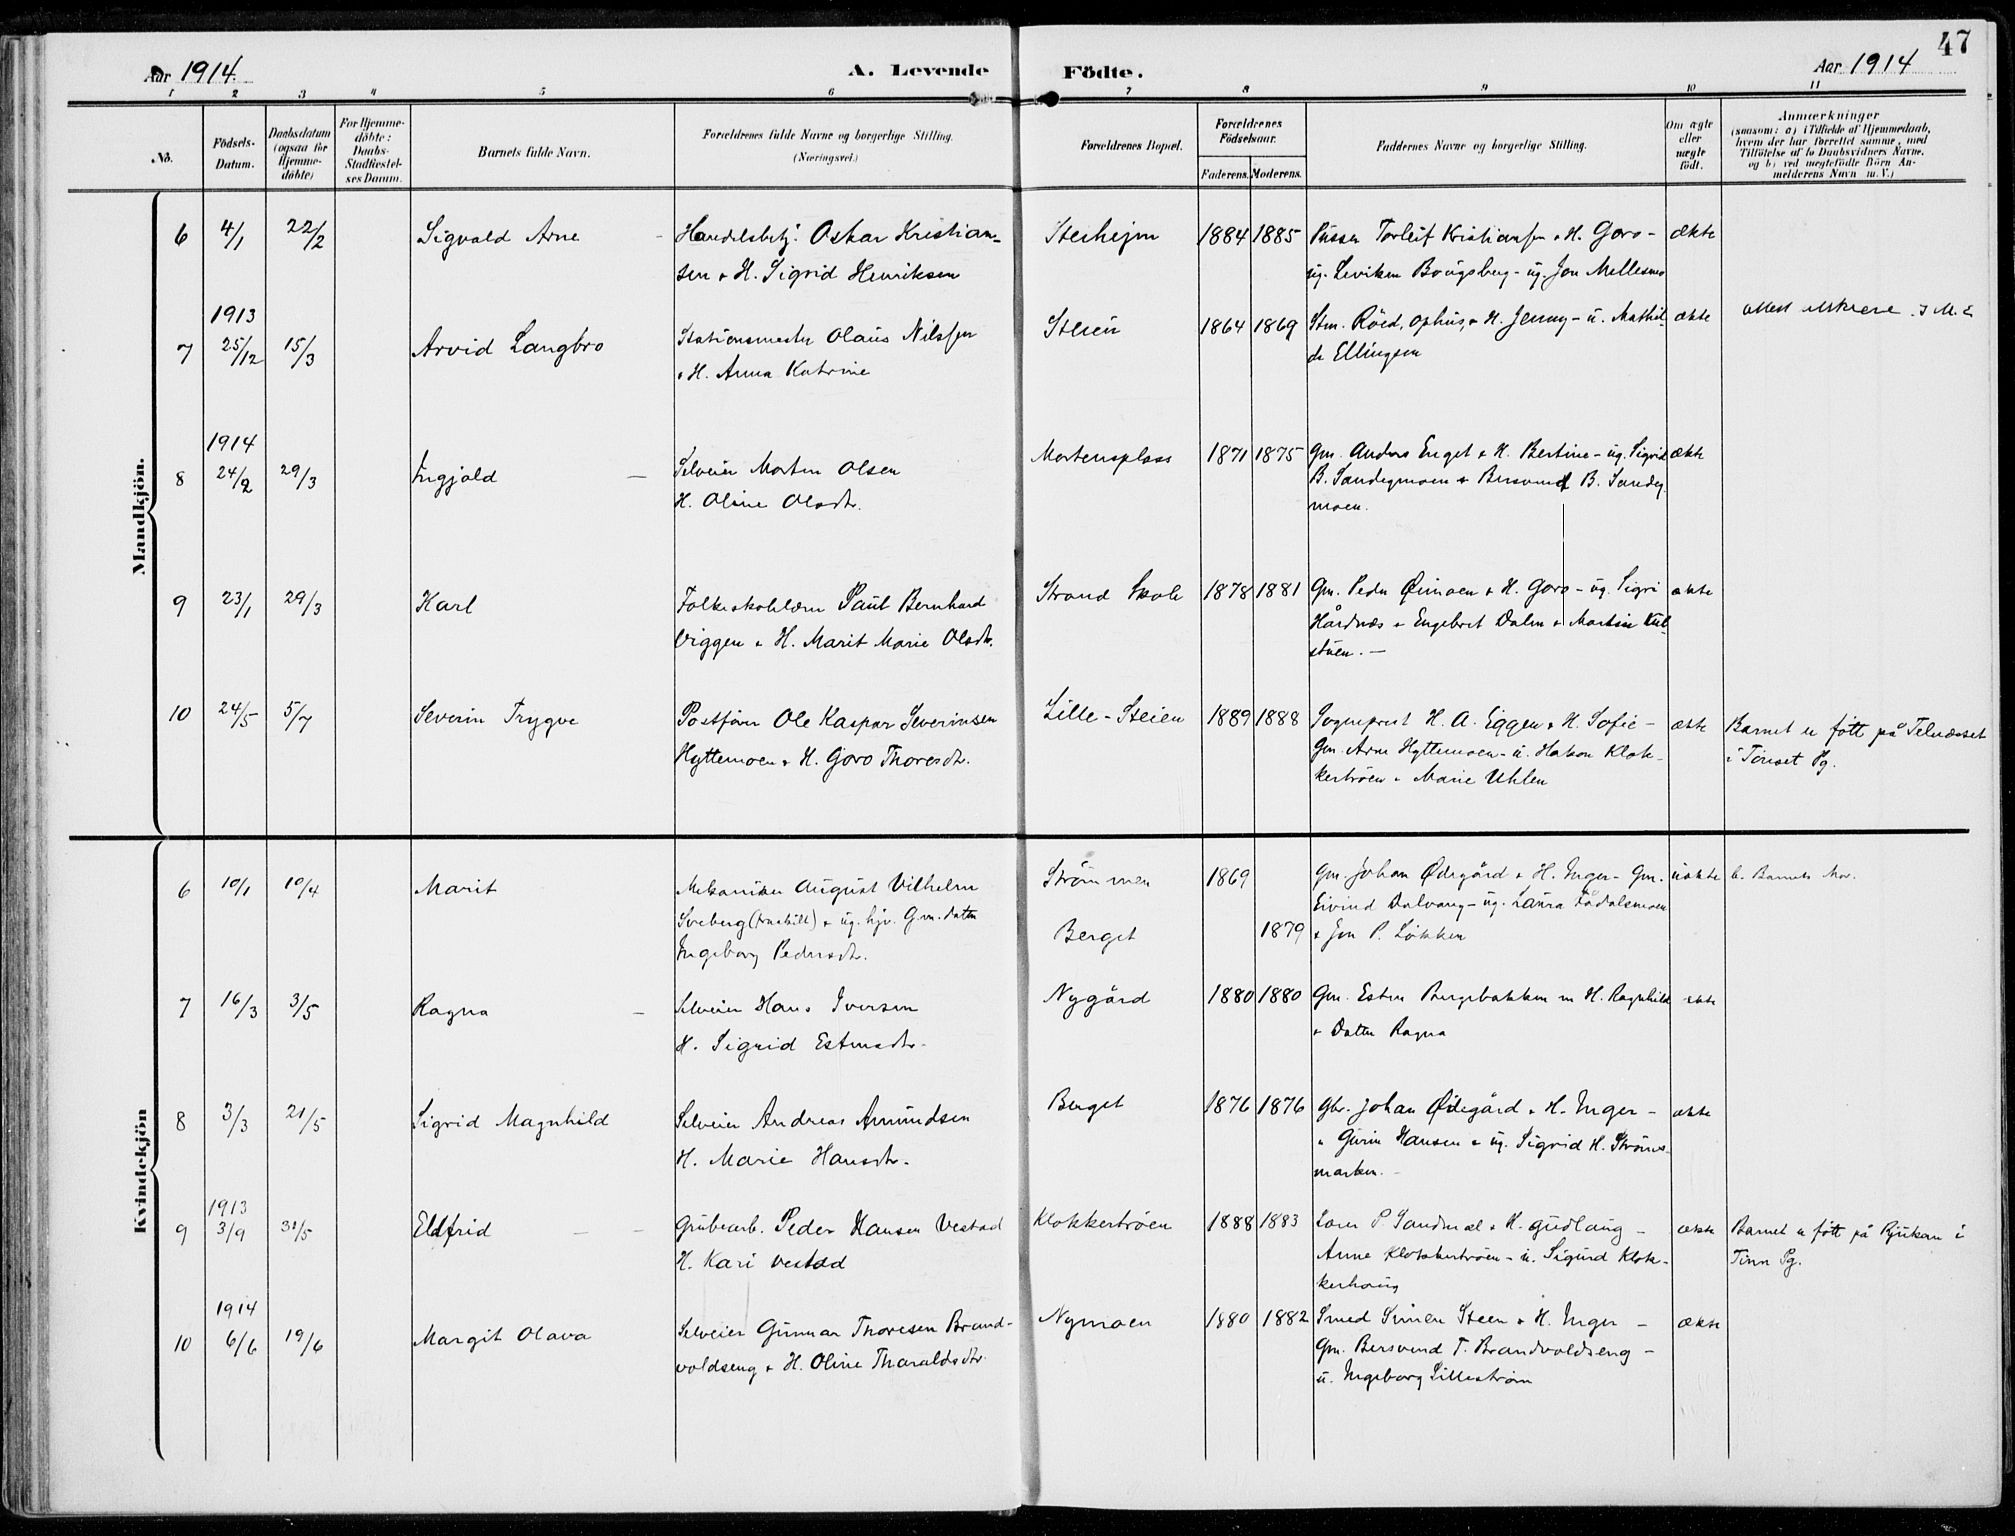 47
Aar 1914.
A. Levende
Födte.
Aar 1914
1 2 3 4 5 6 7 8 9 10 11
No.
Födsels-
Datum.
Daabsdatum
(ogsaa for
Hjemme-
döbte)
For Hjemme-
döbte:
Daabs-
Stadfæstel-
ses Datum.
Barnets fulde Navn.
Forældrenes fulde Navne og borgerlige Stilling.
(Næringsvei.)
Forældrenes Bopæl.
Forældrenes
Födselsaar.
Faderens. Moderens.
Faddernes Navne og borgerlige Stilling.
Om ægte
eller
uægte
födt.
Anmærkninger
(saasom: a) i Tilfælde af Hjemmedaab,
hvem der har forrettet samme, med
Tilföielse af to Daabsvidners Navne,
og b) ved uægtefödte Börn An-
melderens Navn m. V.)
Mandkjön.
6 4/1 22/2 Sigvald Arne
Handelsbetj. Oskar Kristian-
sen & H. Sigrid Henriksen
Steihejm 1884 1885
Pusser Torleif Kristiansen & H. Goro -
ug. Leviken Bougsberg - ug. Jon Mellesmo
ækte
1913
7 25/12 15/3 Arvid Langbro
Stationsmester Olaus Nilssen
& H. Anna Katrine
Steien 1864 1869
Stm. Röed, Ophus, & H. Jenny - u. Mathil-
de Ellingsen
ækte
1914
8 24/2 29/3 Ingjald
Selveier Morten Olsen
H. Oline Olsdtr.
Mortensplass 1871 1875
Gm. Anders Enget & H. Bertine - ug. Sigrid
B. Sandegmoen & Bersvend B. Sandeg-
moen.
ækte
9 23/1 29/3 Karl
Folkeskolelærer Paul Bernhard
Viggen & H. Marit Marie Olsdtr.
Strand Skole 1878 1881
Gm. Peder Øimoen & H. Goro - ug. Sigri
Hårdnæs & Engebret Dalen & Martin Kul-
stuen. -
ækte
10 24/5 5/7 Severin Trygve
Postfører Ole Kaspar Severinsen
Hyttemoen & H. Goro Thoresdtr.
Lille-Steien 1889 1888
Sogneprest H. A. Eggen & H. Sofie -
Gm. Arne Hyttemoen - u. Hakon Klok-
kertrøen & Marie Uhlen
ækte
Barnet er føtt på Telneset
i Tønset Pg.
Kvindekjön
6 10/1 10/4 Marit
Mekaniker August Vilhelm
Sveberg & ug. hjv. Gm. datter
Ingeborg Pedersdtr.
Strömmen 1869
Berget 1879
Gm. Johan Ødegård & H. Inger - Gm.
Eivind Dalvang - ug. Laura Fådalsmoen
& Jon P. Løkken
uækte
b. Barnets Mor.
7 16/3 3/5 Ragna
Selveier Hans Iversen
H. Sigrid Estensdtr.
Nygård 1880 1880
Gm. Esten Bergebakken m H. Ragnhild
& Datter Ragna
ekte
8 3/3 21/5 Sigrid Magnhild
Selveier Andreas Amundsen
H. Marie Hansdtr.
Berget 1876 1876
Gbr. Johan Ødegård & H. Inger -
" Gurin Hansen & ug. Sigrid H. Strøms-
marken. -
ækte
1913
9 3/9 31/5 Eldfrid
Grubearb. Peder Hansen Vestad
H. Kari Vestad
Klokkertröen 1888 1883
Lærer P. Sandmæl & H. Gudlaug -
Anne Klokkertröen - u. Sigurd Klok-
kerhaug
ækte
Barnet er føtt på Rjukan i
Tinn Pg.
1914
10 6/6 19/6 Margit Olava
Selveier Gunnar Thoresen Brand-
voldseng & H. Oline Tharaldsdtr.
Nymoen 1880 1882
Smed Simen Steen & H. Inger -
Gm. Bersvend T. Brandvoldseng -
u. Ingeborg Lillestrøm
ækte